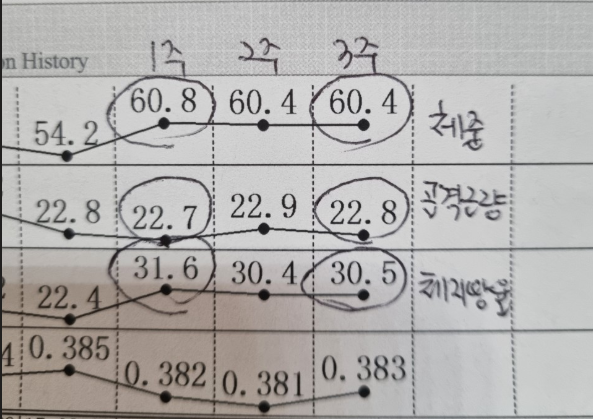 on History 1주 2주 3주
54.2 60.8 60.4 60.4 체중
22.8 22.7 22.9 22.8 골격근량
22.4 31.6 30.4 30.5 체지방율
4 0.385 0.382 0.381 0.383